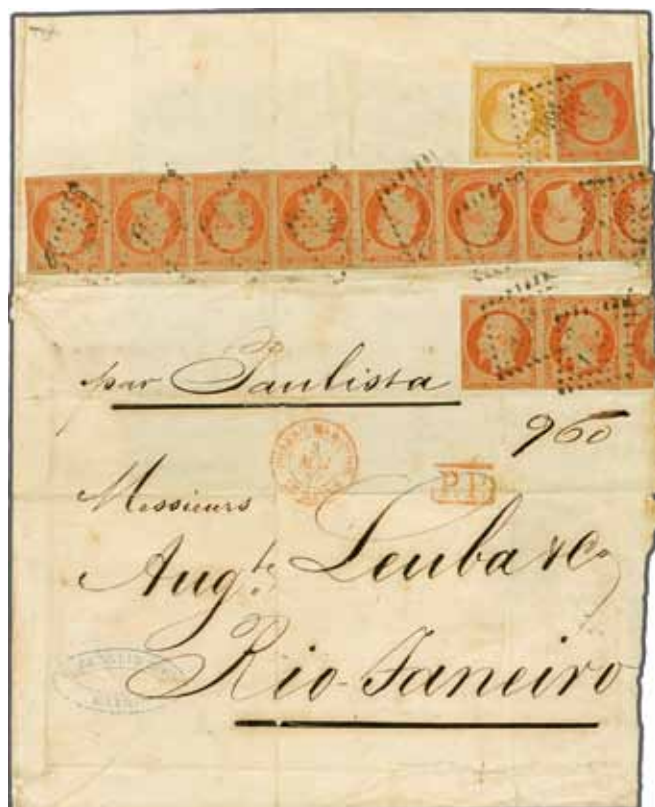 par Paulista
960
P.P.
Messieurs
Aug.te Leuba & Co
Rio-Janeiro